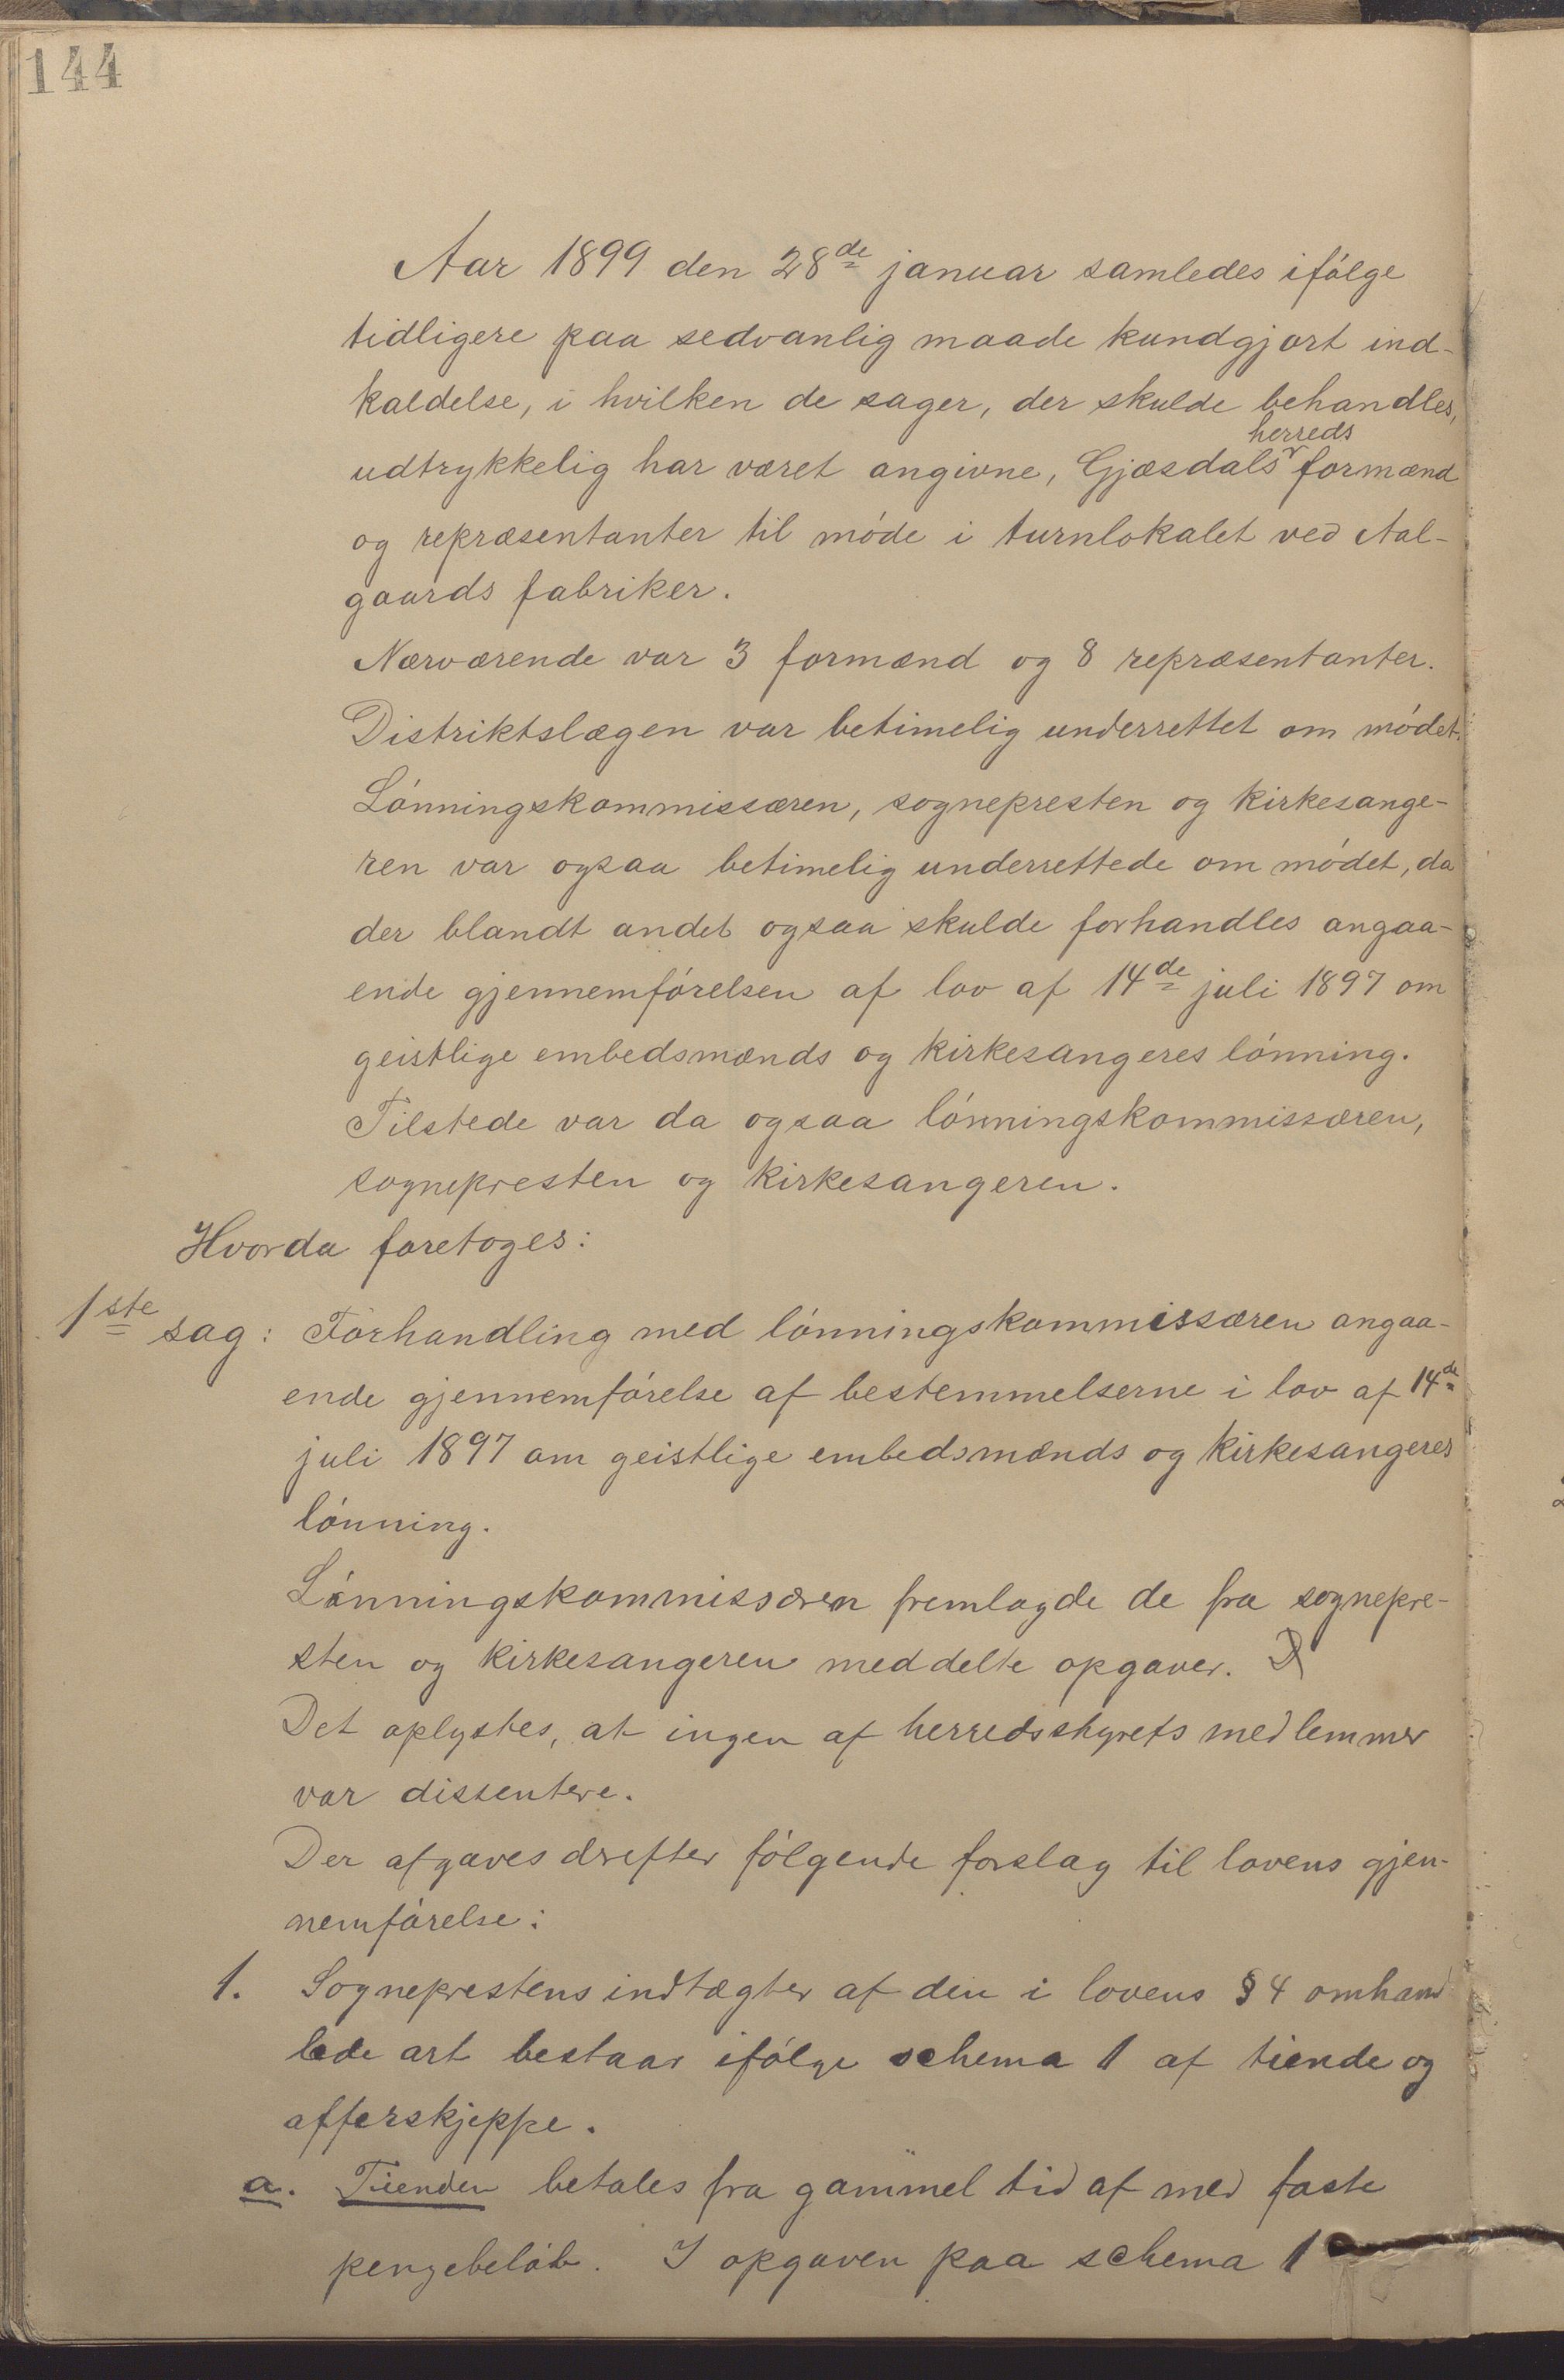 144
Aar 1899 den 28de januar samledes ifólge
tidligere paa sedvanlig maade kundgjort ind-
kaldelse, i hvilken de sager, der skulde behandles,
udtrykkelig har været angivne, Gjæsdals herreds formænd
og repræsentanter til móde i turnlokalet ved Aal-
gaards fabriker.
Nærværende var 3 formænd og 8 repræsentanter.
Distriktslægen var betimelig underrettet om módet.
Lónningskommissæren, sognepresten og kirkesange-
ren var ogsaa betimelig underrettede om módet, da
der blandt andet ogsaa skulde forhandles angaa-
ende gjennemfórelsen af lov af 14de juli 1897 om
geistlige embedsmænds og kirkesangeres lónning.
Tilstede var da ogsaa lónningskommissæren,
sognepresten og kirkesangeren.
Hvorda foretoges:
1ste sag: Forhandling med lónningskommissæren angaa-
ende gjennemfórelse af bestemmelserne i lov af 14de
juli 1897 om geistlige embedsmænds og kirkesangeres
lónning.
Lónningskommissæren fremlagde de fra sognepre-
sten og kirkesangeren meddelte opgaver.
Det oplystes, at ingen af herredsstyrets medlemmer
var dissentere.
Der afgaves derefter fólgende forslag til lovens gjen-
nemfórelse:
1. Sogneprestens indtægter af den i lovens § 4 omhand
lede art bestaar ifólge schema 1 af tiende og
offerskjeppe.
a. Tienden betales fra gammel tid af med faste
pengebelób. I opgaven paa schema 1